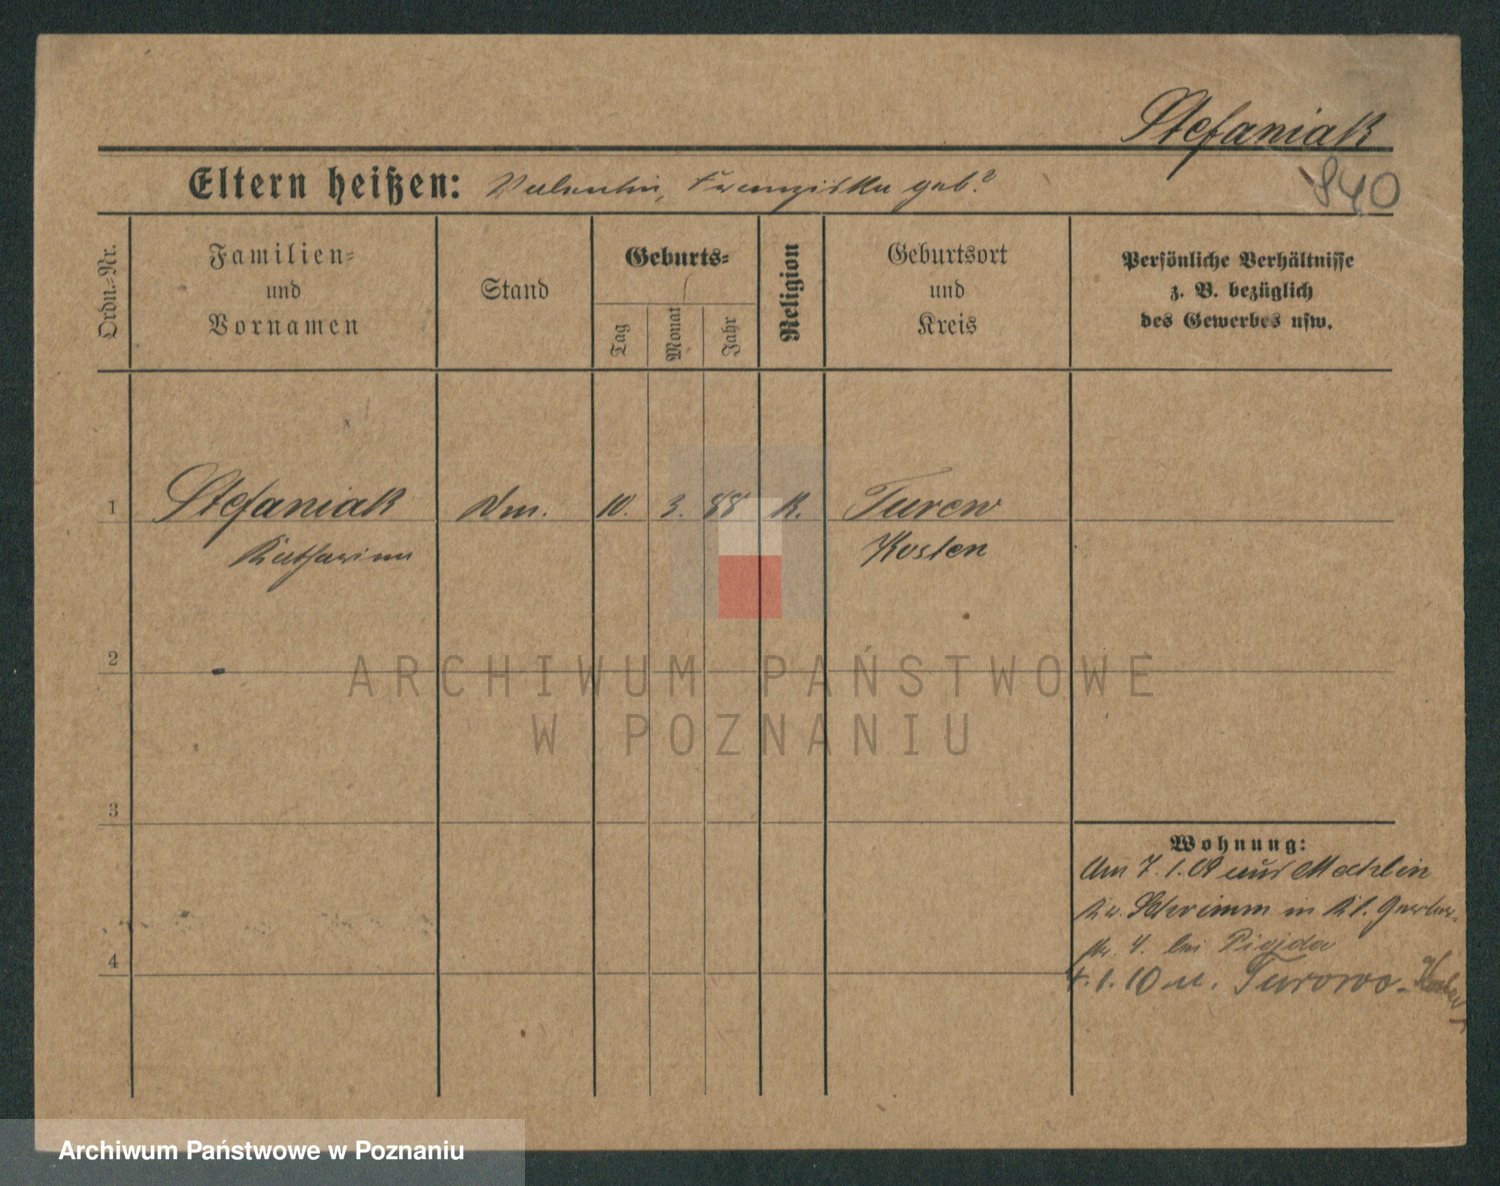 Stefaniak
840
Eltern heißen: Valentin, Franziska geb.?
Ordn.-Nr.
Familien-
und
Vornamen
Stand
Geburts-
Tag
Monat
Jahr
Religion
Geburtsort
und
Kreis
Persönliche Verhältnisse
z. B. bezüglich
des Gewerbes usw.
1 Stefaniak Dm. 10. 3. 88 K. Turew
Katharina Kosten
2
3
4
Wohnung:
Am 7.1.09 aus Mechlin
Kr. Schrimm in Kl. Gerber-
str. 4. bei
4.1.10 n. Turowo-
ARCHIWUM PAŃSTWOWE
W POZNANIU
Archiwum Państwowe w Poznaniu